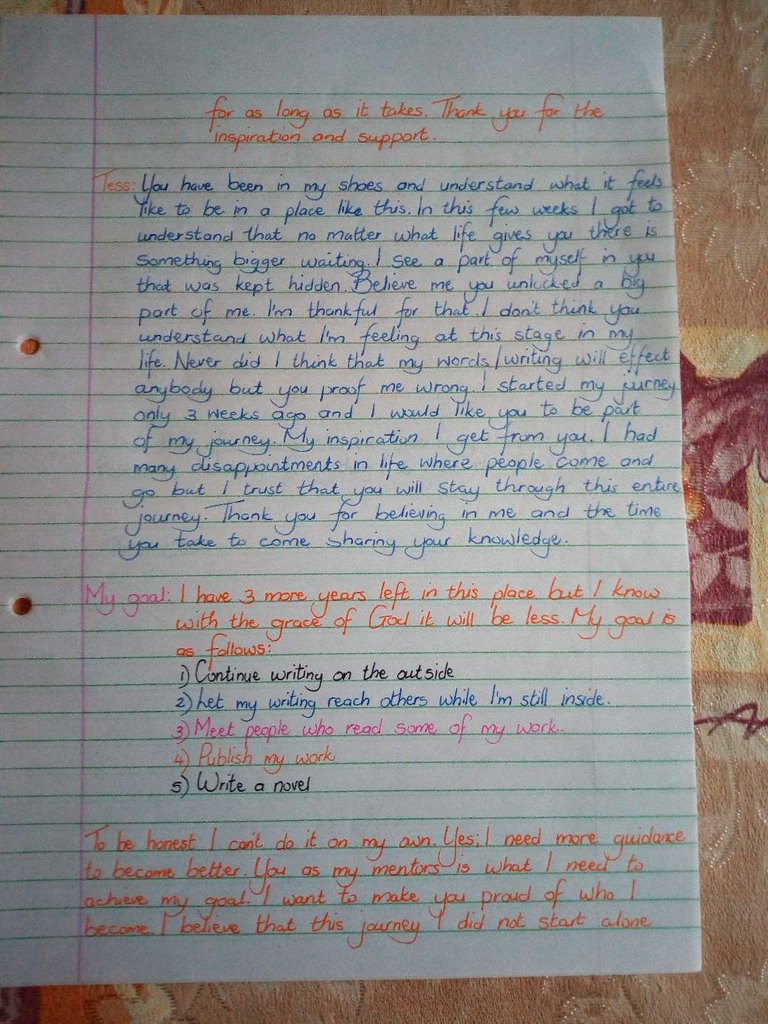 for as long as it takes. Thank you for the
inspiration and support.
Tess: You have been in my shoes and understand what it feels
like to be in a place like this. In this few weeks I got to
understand that no matter what life gives you there is
something bigger waiting. I see a part of myself in you
that was kept hidden. Believe me you unlocked a big
part of me. I'm thankful for that. I don't think you
understand what I'm feeling at this stage in my
life. Never did I think that my words/writing will effect
anybody but you proof me wrong. I started my journey
only 3 weeks ago and I would like you to be part
of my journey. My inspiration I get from you. I had
many disappointments in life where people come and
go but I trust that you will stay through this entire
journey. Thank you for believing in me and the time
you take to come sharing your knowledge.
My goal: I have 3 more years left in this place but I know
with the grace of God it will be less. My goal is
as follows:
1) Continue writing on the outside
2) Let my writing reach others while I'm still inside.
3) Meet people who read some of my work.
4) Publish my work
5) Write a novel
To be honest I can't do it on my own. Yes, I need more guidance
to become better. You as my mentors is what I need to
achieve my goal. I want to make you proud of who I
become. I believe that this journey I did not start alone